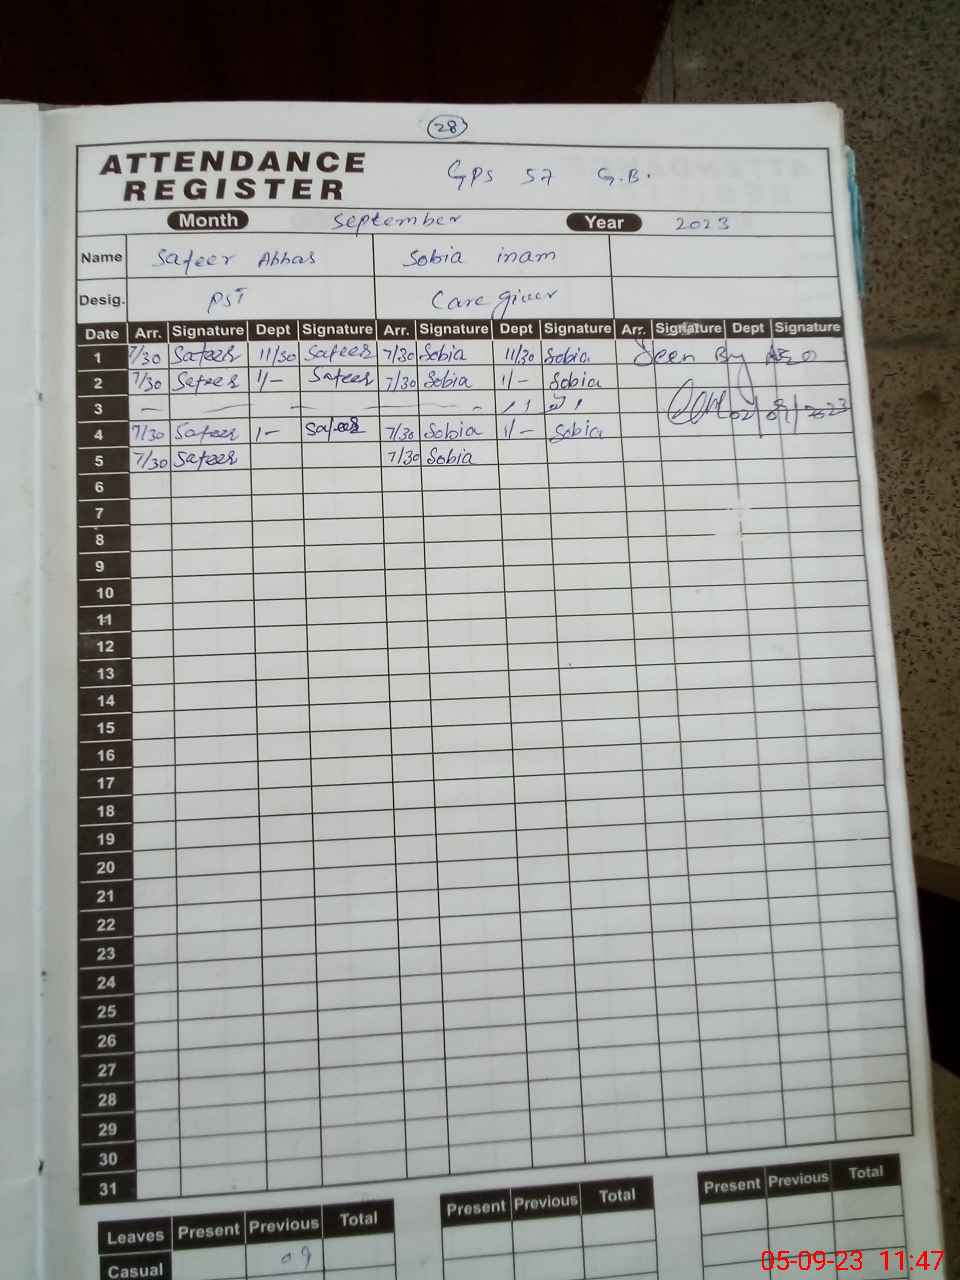 28
ATTENDANCE
REGISTER
GPS 57 G.B.
Month September Year 2023
Name Safeer Abbas Sobia inam
Desig. PST Care giver
Date Arr. Signature Dept Signature Arr. Signature Dept Signature Arr. Signature Dept Signature
1 7/30 Safeer 11/30 Safeer 7/30 Sobia 11/30 Sobia Seen By AEO
2 7/30 Safeer 1/- Safeer 7/30 Sobia 1/- Sobia
3 02/09/2023
4 7/30 Safeer 1- Safeer 7/30 Sobia 1/- Sobia
5 7/30 Safeer 7/30 Sobia
6
7
8
9
10
11
12
13
14
15
16
17
18
19
20
21
22
23
24
25
26
27
28
29
30
31
Leaves Present Previous Total Present Previous Total Present Previous Total
Casual 09
05-09-23 11:47